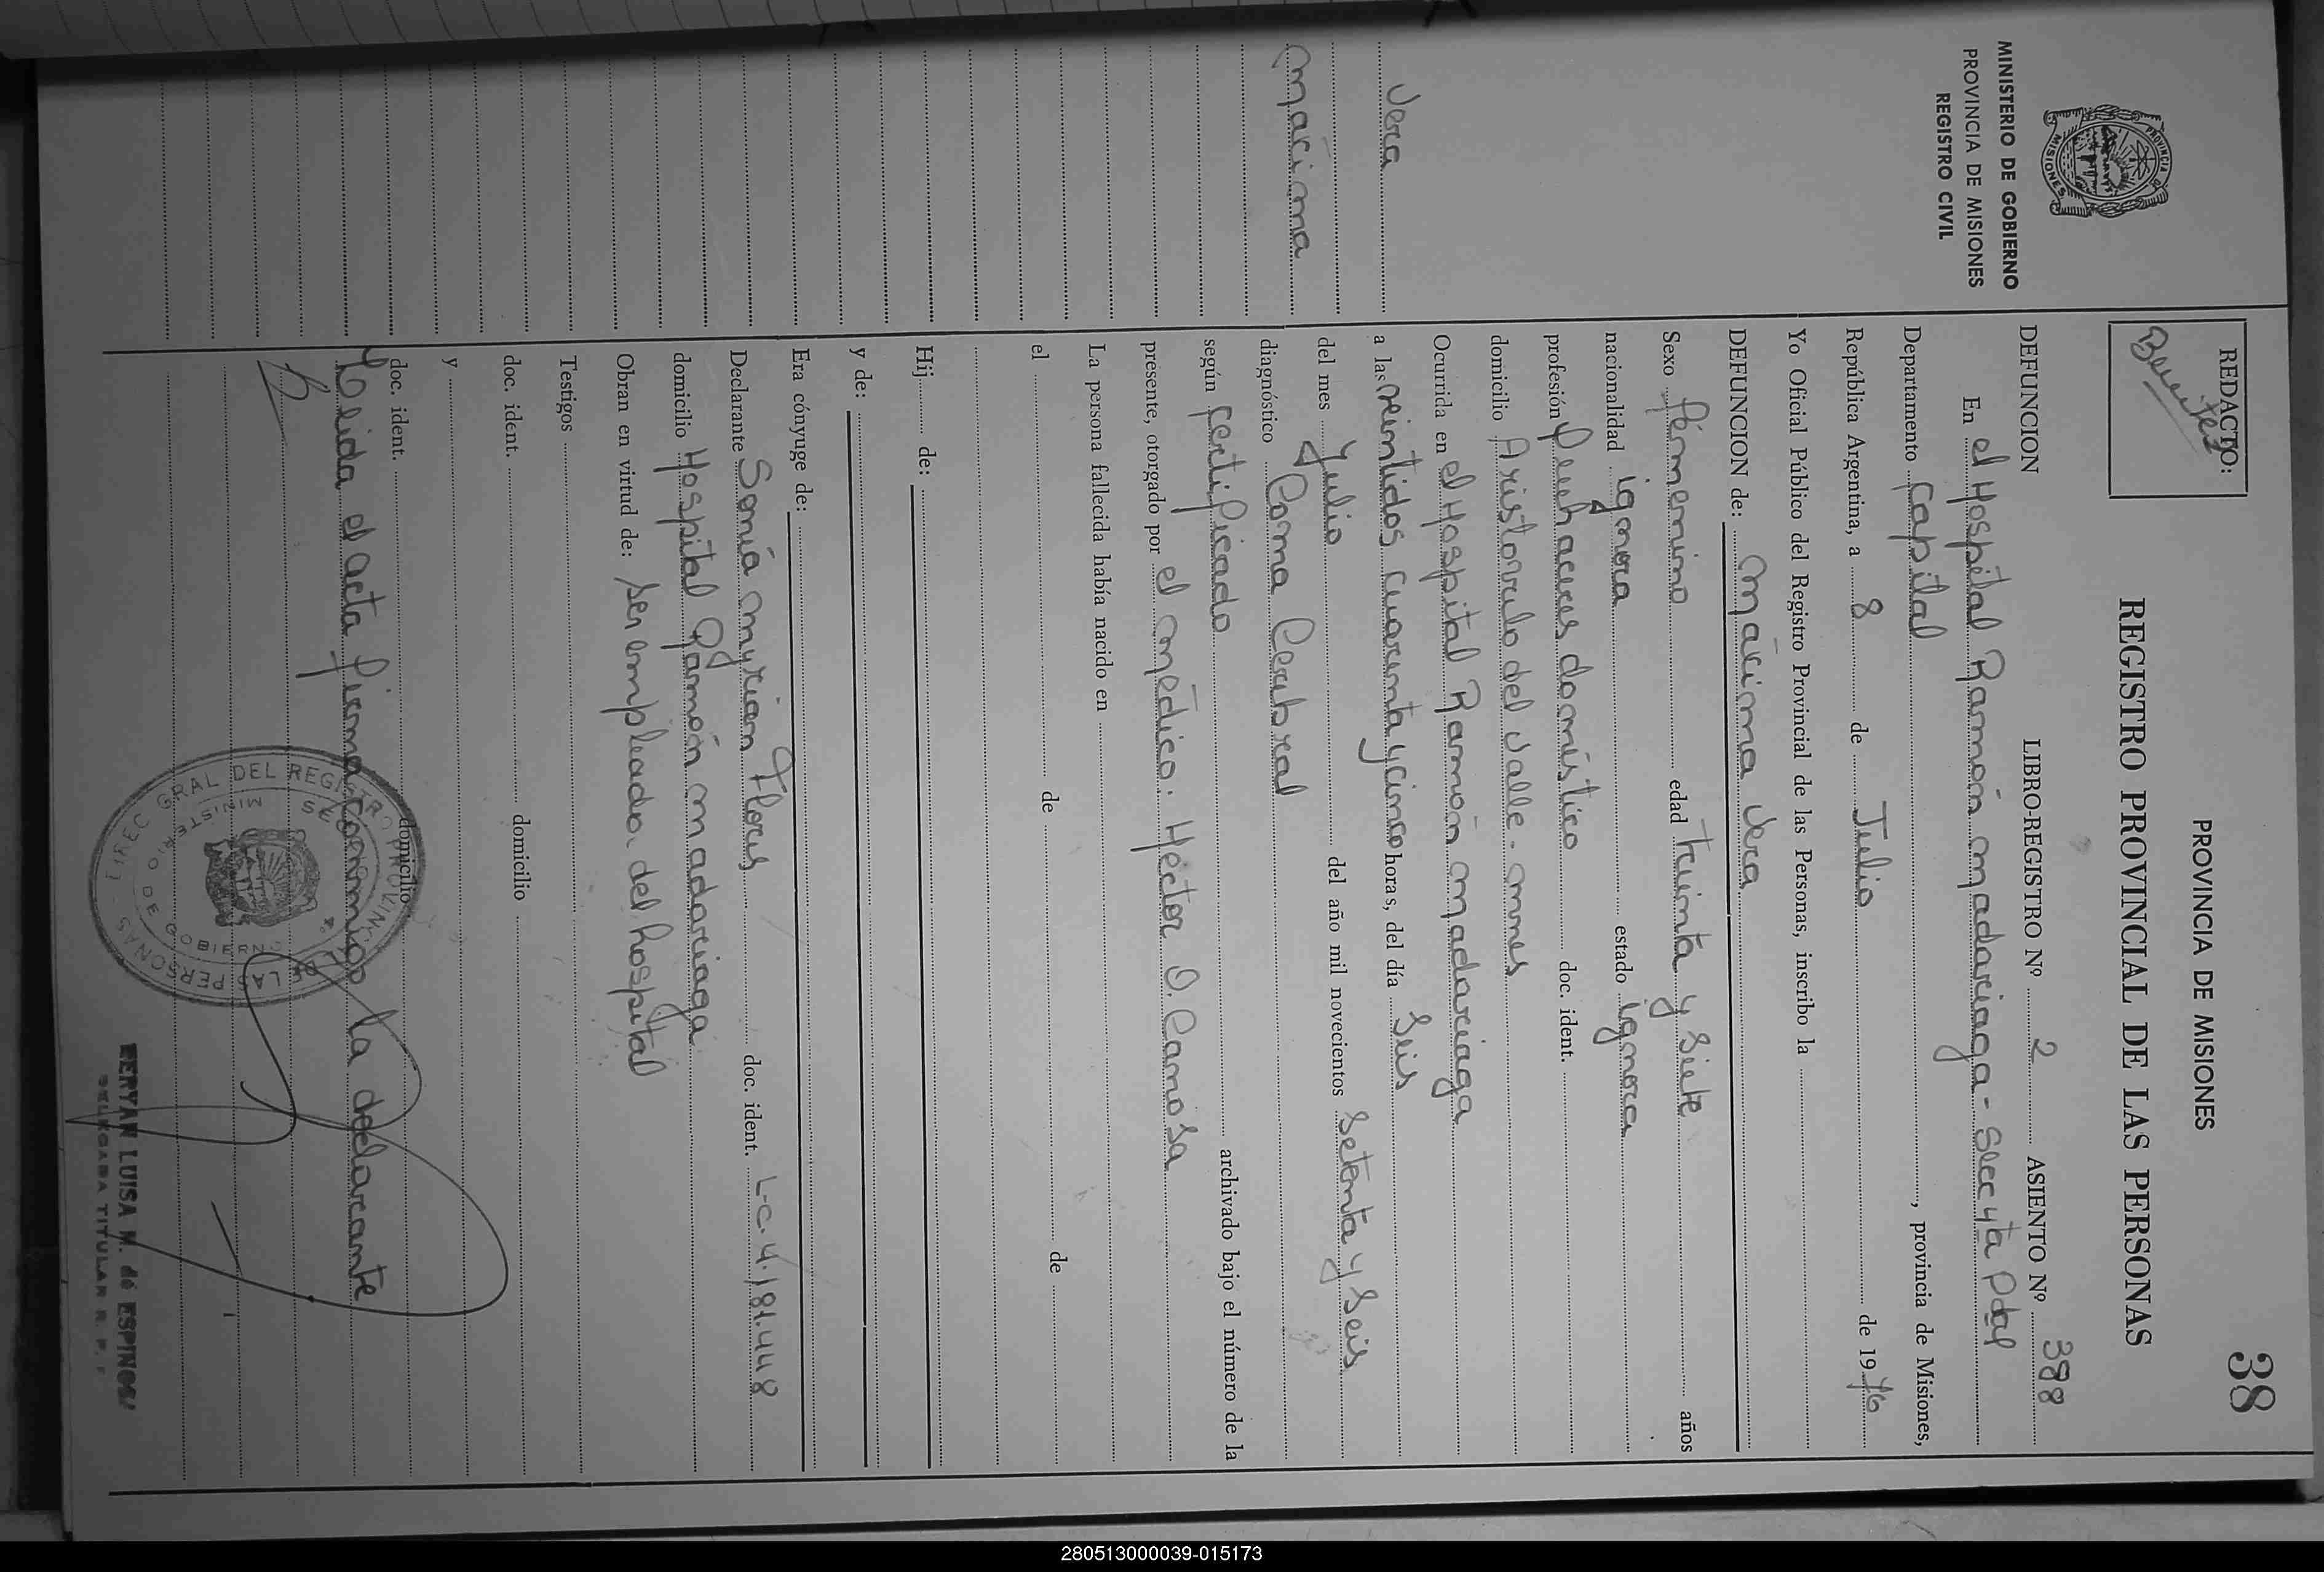 38
PROVINCIA DE MISIONES
REGISTRO PROVINCIAL DE LAS PERSONAS
REDACTO:
Benitez
MINISTERIO DE GOBIERNO
PROVINCIA DE MISIONES
REGISTRO CIVIL
PROVINCIA MISIONES
DEFUNCION LIBRO-REGISTRO Nº 2 ASIENTO Nº 388
En el Hospital Ramón madariaga - Secyta Pdal
Departamento Capital, provincia de Misiones,
República Argentina, a 8 de Julio de 1976
Yo Oficial Público del Registro Provincial de las Personas, inscribo la
DEFUNCION de: Macima Vera
Sexo femenino edad treinta y siete años
nacionalidad ignora estado ignora
profesión Quehaceres doméstico doc. ident.
domicilio Aristobulo del Valle - mnes
Ocurrida en el Hospital Ramón madariaga
a las veintidos cuarenta y cinco horas, del día seis
del mes Julio del año mil novecientos setenta y seis
diagnóstico Coma Cerebral
según certificado archivado bajo el número de la
presente, otorgado por el médico: Héctor O. Camosa
La persona fallecida había nacido en
el de de
Hij de:
y de:
Era cónyuge de:
Declarante Sonia myrian Flores doc. ident. L-C. 4.181.448
domicilio Hospital Ramón madariaga
Obran en virtud de: ser empleada del hospital
Testigos
doc. ident. domicilio
y
doc. ident. domicilio
Leida el acta firma conmigo la declarante
Vera
Macima
DIREC GRAL DEL REGISTRO PROVINC DE LAS PERSONAS
MINISTERIO DE GOBIERNO
MERYAN LUISA M. de ESPINOSA
DELEGADA TITULAR R. P. P.
280513000039-015173